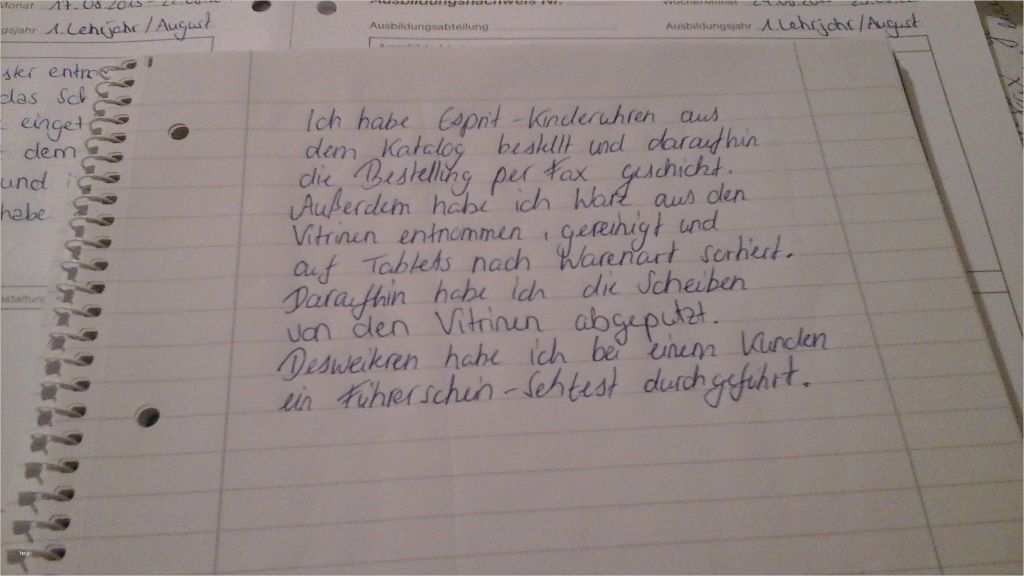 Monat 17.08.2015 -
Ausbildungsnachweis Nr.
1. Lehrjahr / August
Ausbildungsabteilung
Ausbildungsjahr 1. Lehrjahr / August
das
einget
dem
und
habe
Ich habe Esprit - Kinderuhren aus
dem Katalog bestellt und daraufhin
die Bestellung per Fax geschickt.
Außerdem habe ich Ware aus den
Vitrinen entnommen, gereinigt und
auf Tabletts nach Warenart sortiert.
Daraufhin habe ich die Scheiben
von den Vitrinen abgeputzt.
Desweiteren habe ich bei einem Kunden
ein Führerschein - Sehtest durchgeführt.